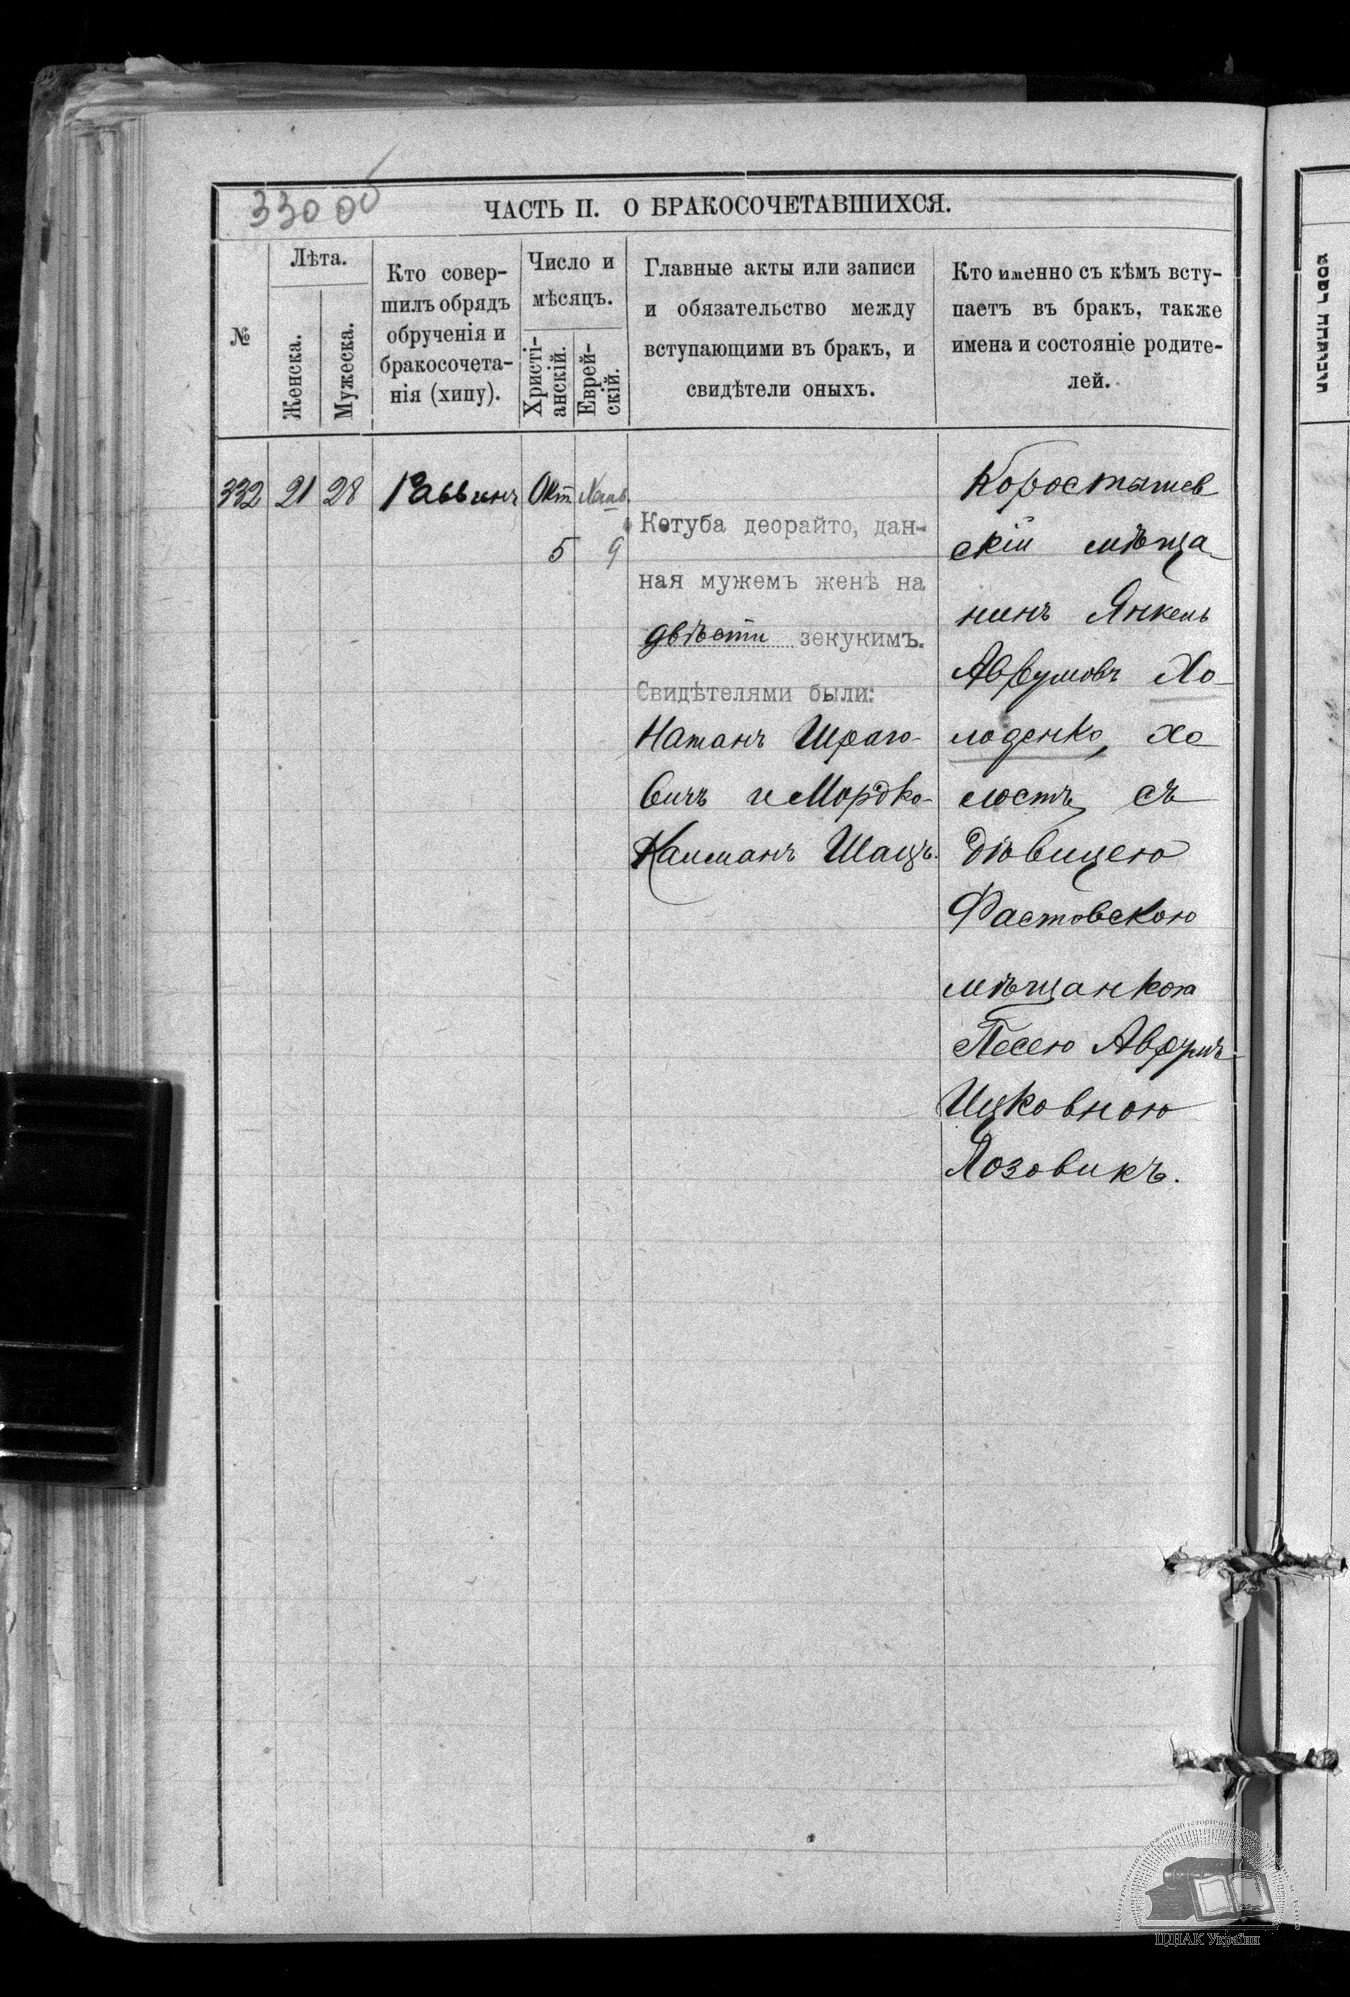 330 об
ЧАСТЬ II. О БРАКОСОЧЕТАВШИХСЯ.
№
Лѣта.
Женска.
Мужеска.
Кто совер-
шилъ обрядъ
обрученія и
бракосочета-
нія (хипу).
Число и
мѣсяцъ.
Христі-
анскій.
Еврей-
скій.
Главные акты или записи
и обязательство между
вступающими въ бракъ, и
свидѣтели оныхъ.
Кто именно съ кѣмъ всту-
паетъ въ бракъ, также
имена и состояніе родите-
лей.
332 21 28 Раввинъ Окт
5 9
Кетуба деорайто, дан-
ная мужемъ женѣ на
двѣсти зекукимъ.
Свидѣтелями были:
Натанъ Шраго-
вичъ и Мордко-
Калманъ Шацъ.
Коростышев
скій мѣща
нинъ Янкель
Аврумовъ Хо
лоденко, хо
лостъ, съ
дѣвицею
Фастовскою
мѣщанкою
Песею Аврумъ
Ицковною
Лозовикъ.
ЦДІАК України